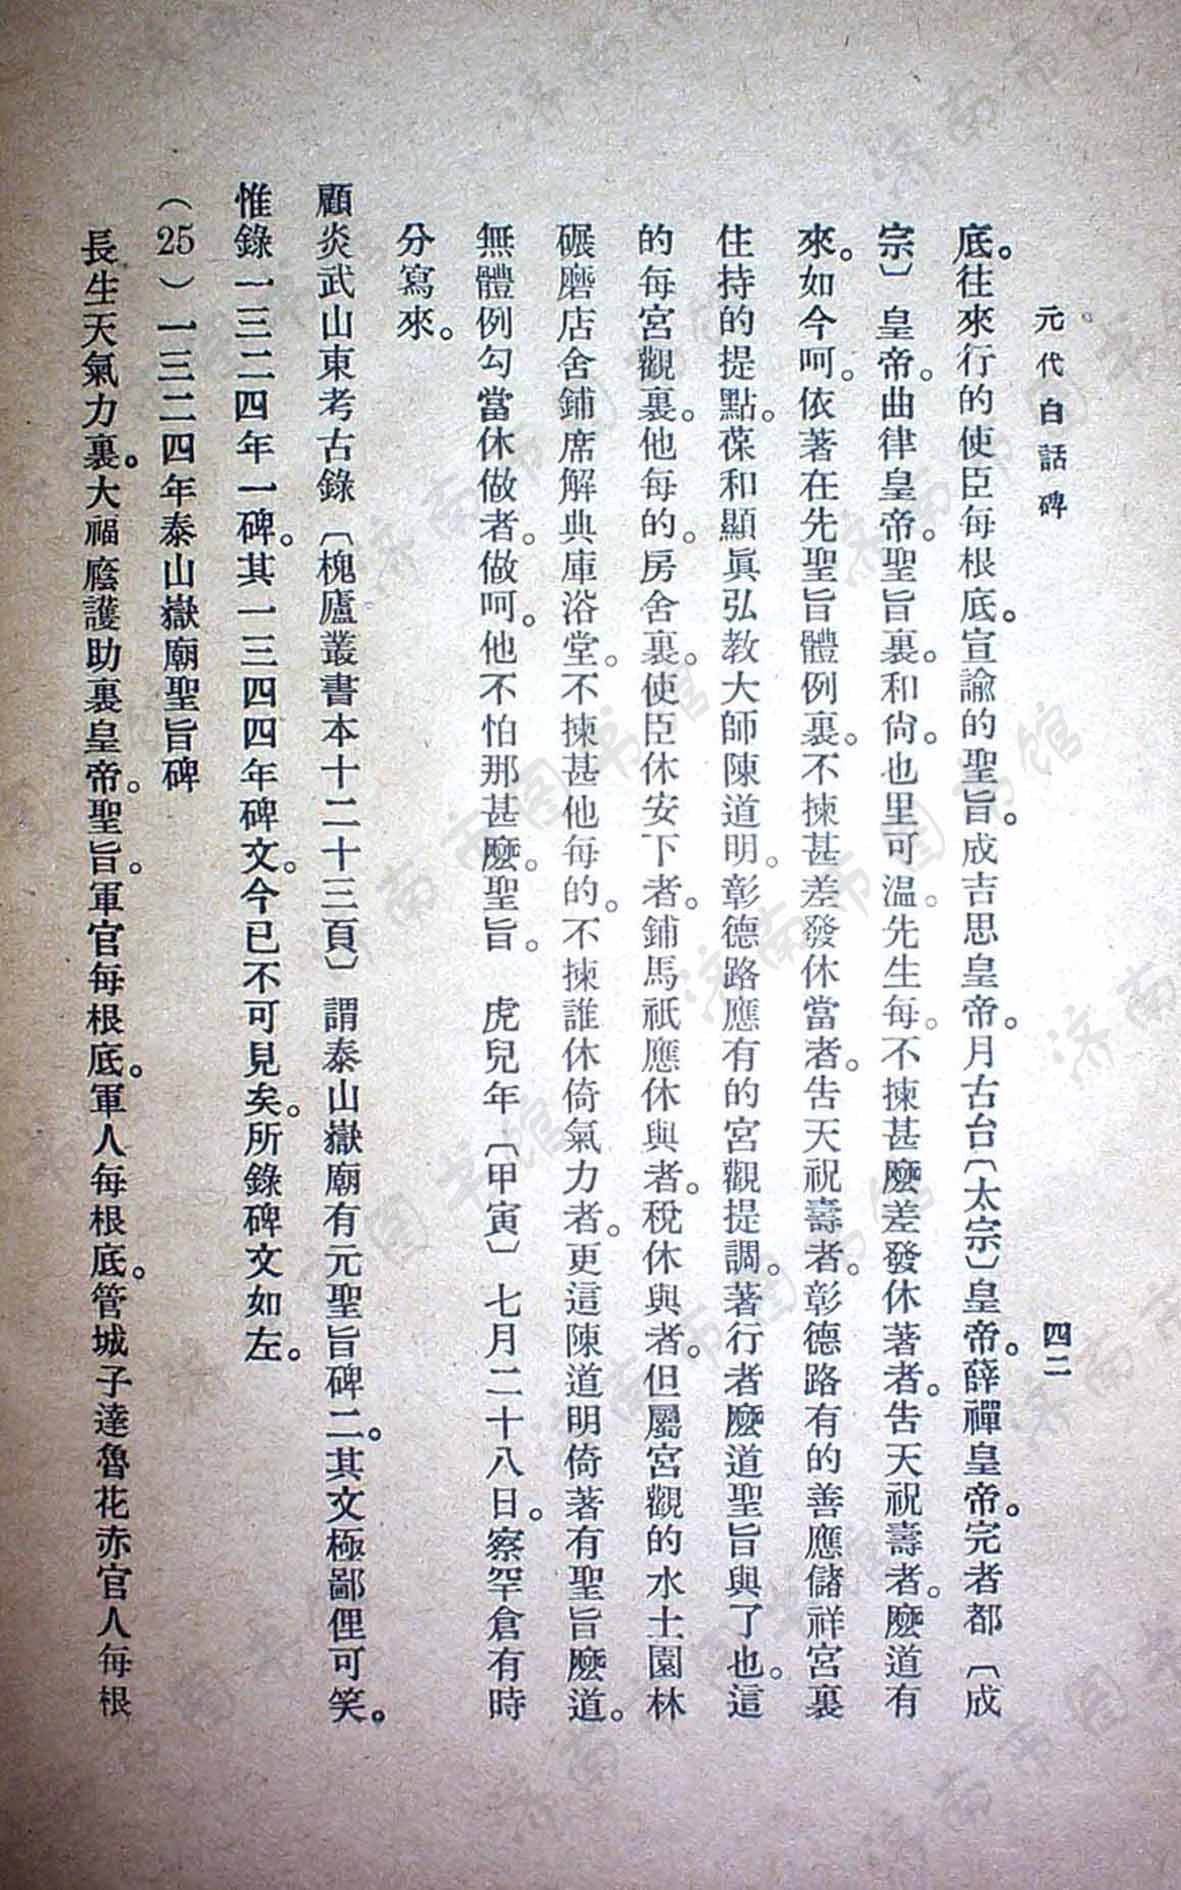 元代白話碑
四二
底。往來行的使臣每根底。宣諭的聖旨。成吉思皇帝。月古台〔太宗〕皇帝。薛禪皇帝。完者都〔成
宗〕皇帝。曲律皇帝。聖旨裏。和尙。也里可溫。先生每。不揀甚麼差發休著者。吿天祝壽者。麼道有
來。如今呵。依著在先聖旨體例裏。不揀甚差發休當者。吿天祝壽者。彰德路有的善應儲祥宮裏
住持的提點。葆和顯眞弘教大師陳道明。彰德路應有的宮觀提調。著行者麼道聖旨與了也。這
的每宮觀裏。他每的。房舍裏。使臣休安下者。鋪馬祇應休與者。稅休與者。但屬宮觀的水土園林
碾磨店舍鋪席解典庫浴堂。不揀甚他每的。不揀誰休倚氣力者。更這陳道明倚著有聖旨麼道。
無體例勾當休做者。做呵。他不怕那甚麼聖旨。　虎兒年〔甲寅〕七月二十八日。察罕倉有時
分寫來。
顧炎武山東考古錄〔槐廬叢書本十二十三頁〕謂泰山嶽廟有元聖旨碑二。其文極鄙俚可笑。
惟錄一三二四年一碑。其一三四四年碑文。今已不可見矣。所錄碑文如左。
（25）一三二四年泰山嶽廟聖旨碑
長生天氣力裏。大福廕護助裏皇帝。聖旨。軍官每根底。軍人每根底。管城子達魯花赤官人每根
济南市图书馆